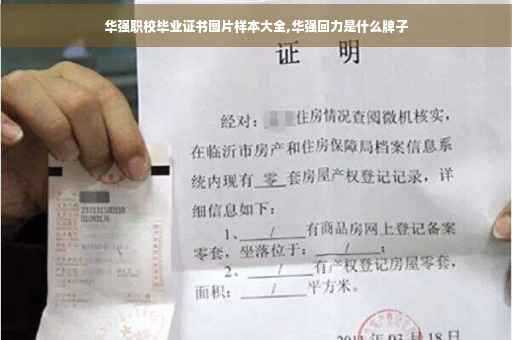 华强职校毕业证书图片样本大全,华强回力是什么牌子
证 明
经对: 住房情况查阅微机核实,
在临沂市房产和住房保障局档案信息系
统内现有 零 套房屋产权登记记录,详
细信息如下:
1、 / 有商品房网上登记备案
零套,坐落位于: / ;
2、 / 有产权登记房屋零套,
面积: / 平方米。
月18日